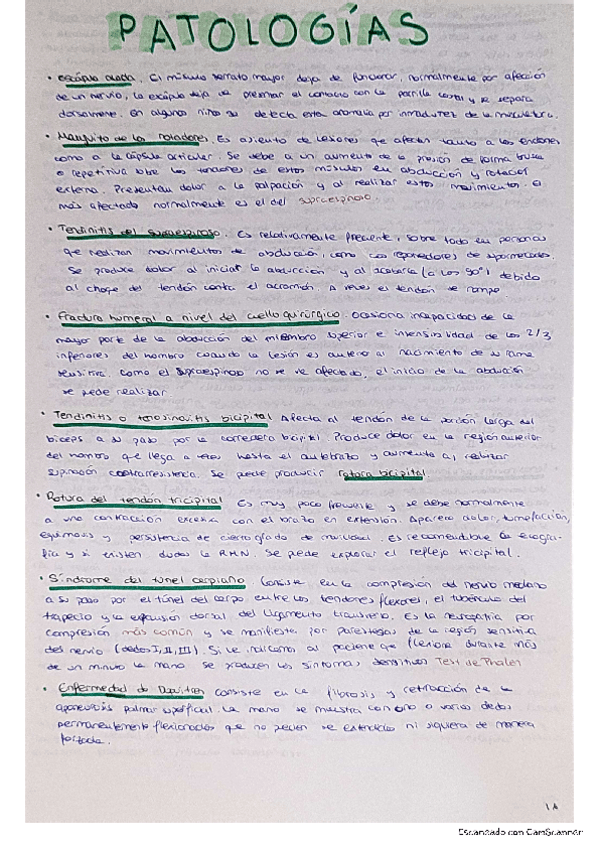 PATOLOGÍAS
• escápula alada. El músculo serrato mayor deja de funcionar, normalmente por afección
de un nervio, la escápula deja de presentar el contacto con la parrilla costal y se separa
dorsalmente. En algunos niños se detecta esta anomalía por inmadurez de la musculatura.
• Manguito de los rotadores. Es asiento de lesiones que afectan tanto a los tendones
como a la cápsula articular. Se debe a un aumento de la presión de forma brusca
o repetitiva sobre los tendones de estos músculos en abducción y rotación
externa. Presentan dolor a la palpación y al realizar estos movimientos. El
más afectado normalmente es el del supraespinoso.
• Tendinitis del supraespinoso. Es relativamente frecuente, sobre todo en personas
que realizan movimientos de abducción, como los reponedores de supermercados.
Se produce dolor al iniciar la abducción y al acabarla (a los 90°) debido
al choque del tendón contra el acromion. A veces el tendón se rompe.
• Fractura humeral a nivel del cuello quirúrgico. Ocasiona incapacidad de la
mayor parte de la abducción del miembro superior e insensibilidad de los 2/3
inferiores del hombro cuando la lesión es anterior al nacimiento de su rama
sensitiva. Como el supraespinoso no se ve afectado, el inicio de la abducción
se puede realizar.
• Tendinitis o tenosinovitis bicipital Afecta al tendón de la porción larga del
bíceps a su paso por la corredera bicipital. Produce dolor en la región anterior
del hombro que llega a veces hasta el antebrazo y aumenta al realizar
supinación contrarresistencia. Se puede producir rotura bicipital
• Rotura del tendón tricipital Es muy poco frecuente y se debe normalmente
a una contracción excesiva con el brazo en extensión. Aparece dolor, tumefacción,
equimosis y persistencia de cierto grado de movilidad. Es recomendable la ecogra-
fía y si existen dudas la RMN. Se puede explorar el reflejo tricipital.
• Síndrome del túnel carpiano Consiste en la compresión del nervio mediano
a su paso por el túnel del carpo entre los tendones flexores, el tubérculo del
trapecio y la expansión dorsal del ligamento transverso. Es la neuropatía por
compresión más común y se manifiesta por parestesias de la región sensitiva
del nervio (dedos I, II, III) Si le indicamos al paciente que flexione durante más
de un minuto la mano se producen los síntomas sensitivos Test de Phalen
• Enfermedad de Dupuitren consiste en la fibrosis y retracción de la
aponeurosis palmar superficial. La mano se muestra con uno o varios dedos
permanentemente flexionados que no pueden ser extendidos ni siquiera de manera
forzada.
Escaneado con CamScanner